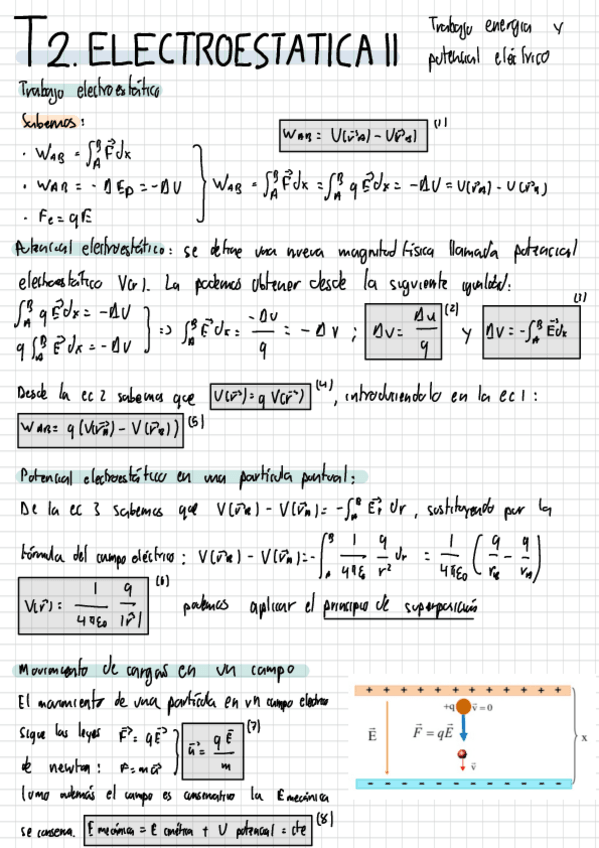 T2. ELECTROESTATICA II
Trabajo energia y
potencial eléctrico
Trabajo electroestático
Sabemos:
W_AB = U(r⃗_A) - U(r⃗_B) (1)
· W_AB = ∫_A^B F⃗dx
· W_AB = -ΔE_p = -ΔU
· F_e = qE
W_AB = ∫_A^B F⃗dx = ∫_A^B q E⃗dx = -ΔU = U(r_A) - U(r_B)
Potencial electroestático: se define una nueva magnitud física llamada potencial
electroestático V(r). La podemos obtener desde la siguiente igualdad:
∫_A^B q E⃗dx = -ΔU
q ∫_A^B E⃗dx = -ΔU
=> ∫_A^B E⃗dx = -ΔU/q = -ΔV ; ΔV = ΔU/q (2) y ΔV = -∫_A^B E⃗dx (3)
Desde la ec 2 sabemos que U(r⃗) = q V(r⃗) (4), introduciendolo en la ec 1:
W_AB = q (V(r⃗_A) - V(r⃗_B)) (5)
Potencial electroestático en una partícula puntual:
De la ec 3 sabemos que V(r⃗_B) - V(r⃗_A) = -∫_A^B E⃗_r dr, sustituyendo por la
fórmula del campo eléctrico: V(r⃗_B) - V(r⃗_A) = -∫_A^B 1/4πε₀ q/r² dr = 1/4πε₀ (q/r_B - q/r_A)
V(r⃗) = 1/4πε₀ q/|r⃗| (6) podemos aplicar el principio de superposición
Movimiento de cargas en un campo
El movimiento de una partícula en un campo electrico
Sigue las leyes F⃗ = qE⃗
de newton: F = ma⃗
a⃗ = q E⃗/m (7)
Como además el campo es conservativo la E mecánica
se conserva. E mecánica = E cinética + U potencial = cte (8)
+ + + + + + + + + + + +
+q v⃗ = 0
E⃗ F⃗ = qE⃗ x
v⃗
- - - - - - - - - - - -